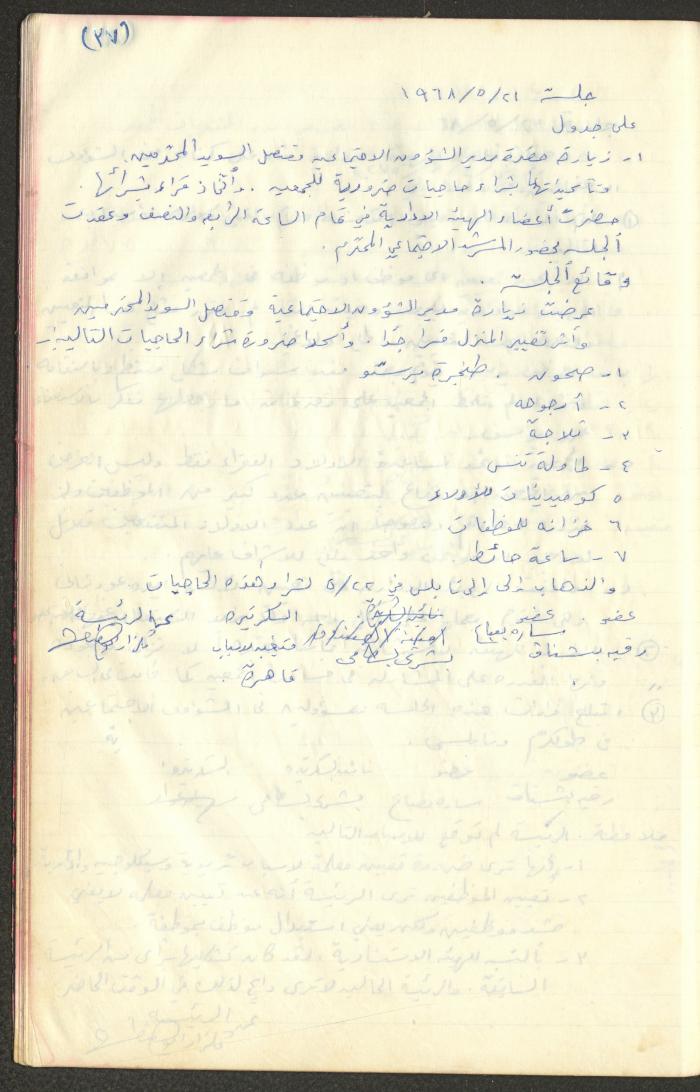 (٣٧)
جلسة ٢١/٥/١٩٦٨
على جدول
١- زيارة حضرة مدير الشؤون الاجتماعية وقنصل السويد المحترمين
بشراء حاجيات ضرورية للجمعية. واتخاذ قراء بشرائها.
حضرت أعضاء الهيئة الادارية في تمام الساعة الرابعة والنصف وعقدت
الجلسة بحضور المرشد الاجتماعي المحترم.
وقائع الجلسة.
عرضت زيارة مدير الشؤون الاجتماعية وقنصل السويد المحترمين
تغيير المنزل جدا. ضرورة شراء الحاجيات التالية:-
١- صحون. طنجرة برستو
٢- أرجوحه
٣- ثلاجة
٤- طاولة تنس
٥ كوميدينات للأولاد
٦ خزانه للموظفات
٧- ساعة حائط
والذهاب إلى نابلس في ٢٢/٥ لشراء هذه الحاجيات.
عضو عضو نائبة السكرتيرة السكرتيره عن الرئيسة
رقيه بشناق ساره بشرى متغيبه لاسباب
قاهرة